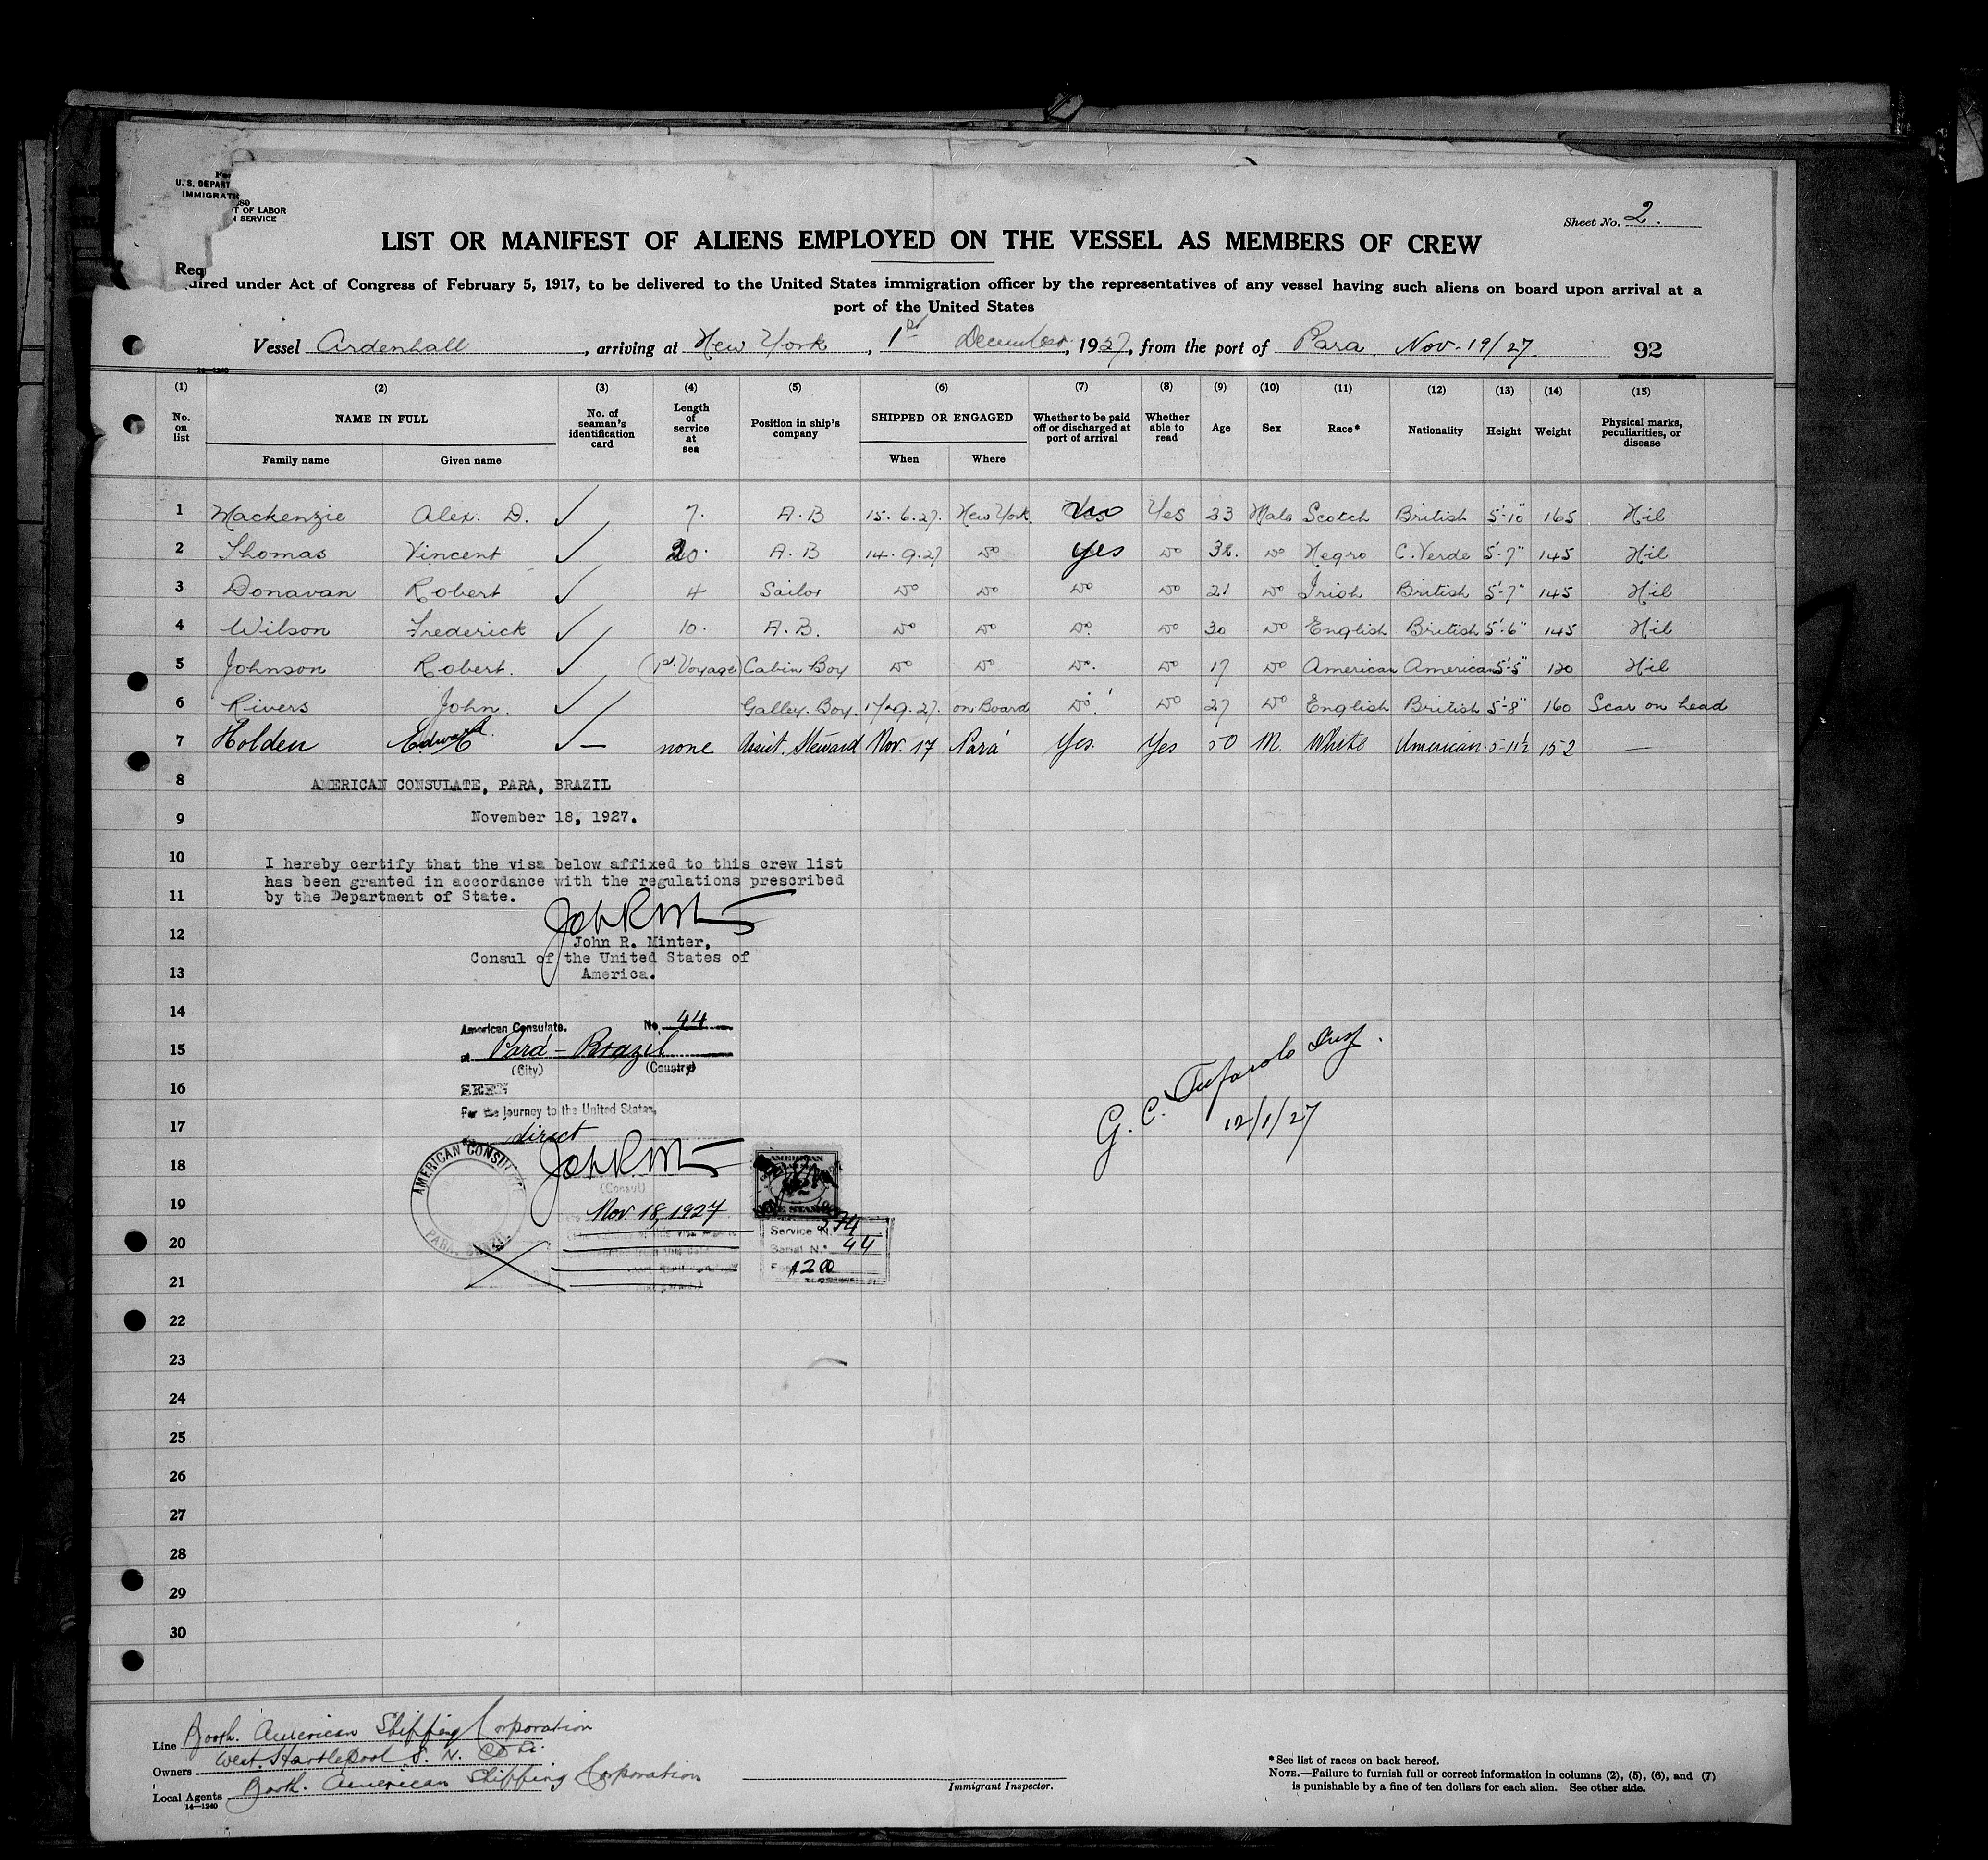 For
U. S. DEPART
IMMIGRATI
680
T OF LABOR
N SERVICE
Sheet No. 2.
LIST OR MANIFEST OF ALIENS EMPLOYED ON THE VESSEL AS MEMBERS OF CREW
Required under Act of Congress of February 5, 1917, to be delivered to the United States immigration officer by the representatives of any vessel having such aliens on board upon arrival at a
port of the United States
Vessel Ardenhall, arriving at New York, 1st December, 1927, from the port of Para. Nov-19/27.
92
14—1240
(1) (2) (3) (4) (5) (6) (7) (8) (9) (10) (11) (12) (13) (14) (15)
No. on list NAME IN FULL No. of seaman's identification card Length of service at sea Position in ship's company SHIPPED OR ENGAGED Whether to be paid off or discharged at port of arrival Whether able to read Age Sex Race* Nationality Height Weight Physical marks, peculiarities, or disease
Family name Given name When Where
1 Mackenzie Alex. D. ✓ 7. A.B 15.6.27. New York. No Yes 33 Male Scotch British 5'-10" 165 Nil
2 Thomas Vincent ✓ 20. A.B 14.9.27 do yes do 38. do Negro C. Verde 5'-7" 145 Nil
3 Donavan Robert ✓ 4 Sailor do do do do 21 do Irish British 5'-7" 145 Nil
4 Wilson Frederick ✓ 10. A.B. do do do. do 30 do English British 5'-6" 145 Nil
5 Johnson Robert. ✓ (1st Voyage) Cabin Boy do do do. do 17 do American American 5'-5" 120 Nil
6 Rivers John. ✓ Galley. Boy. 17.9.27. on Board do. do 27 do English British 5'-8" 160 Scar on head
7 Holden Edward. ✓ — none Assist. Steward Nov. 17 Pará Yes. Yes 50 M. White American 5-11½ 152 —
8
AMERICAN CONSULATE, PARA, BRAZIL
9
November 18, 1927.
10
I hereby certify that the visa below affixed to this crew list
has been granted in accordance with the regulations prescribed
11
by the Department of State.
12
John R. Minter,
Consul of the United States of
13
America.
14
American Consulate. No. 44
15
at Pará - Brazil
(City) (Country)
16
SEEN
For the journey to the United States,
17
direct
18
AMERICAN CONSULATE
PARA, BRAZIL
AMERICAN
(Consul)
19
Nov 18, 1927
Service No. 274
20
Serial No. 44
21
22
23
24
25
26
27
28
29
30
G. C. Insp.
12/1/27
Line Booth. American Shipping Corporation
Owners West. Hartlepool S. N. Co Ld.
Local Agents Booth. American Shipping Corporation
14—1240
Immigrant Inspector.
* See list of races on back hereof.
NOTE.—Failure to furnish full or correct information in columns (2), (5), (6), and (7)
is punishable by a fine of ten dollars for each alien. See other side.